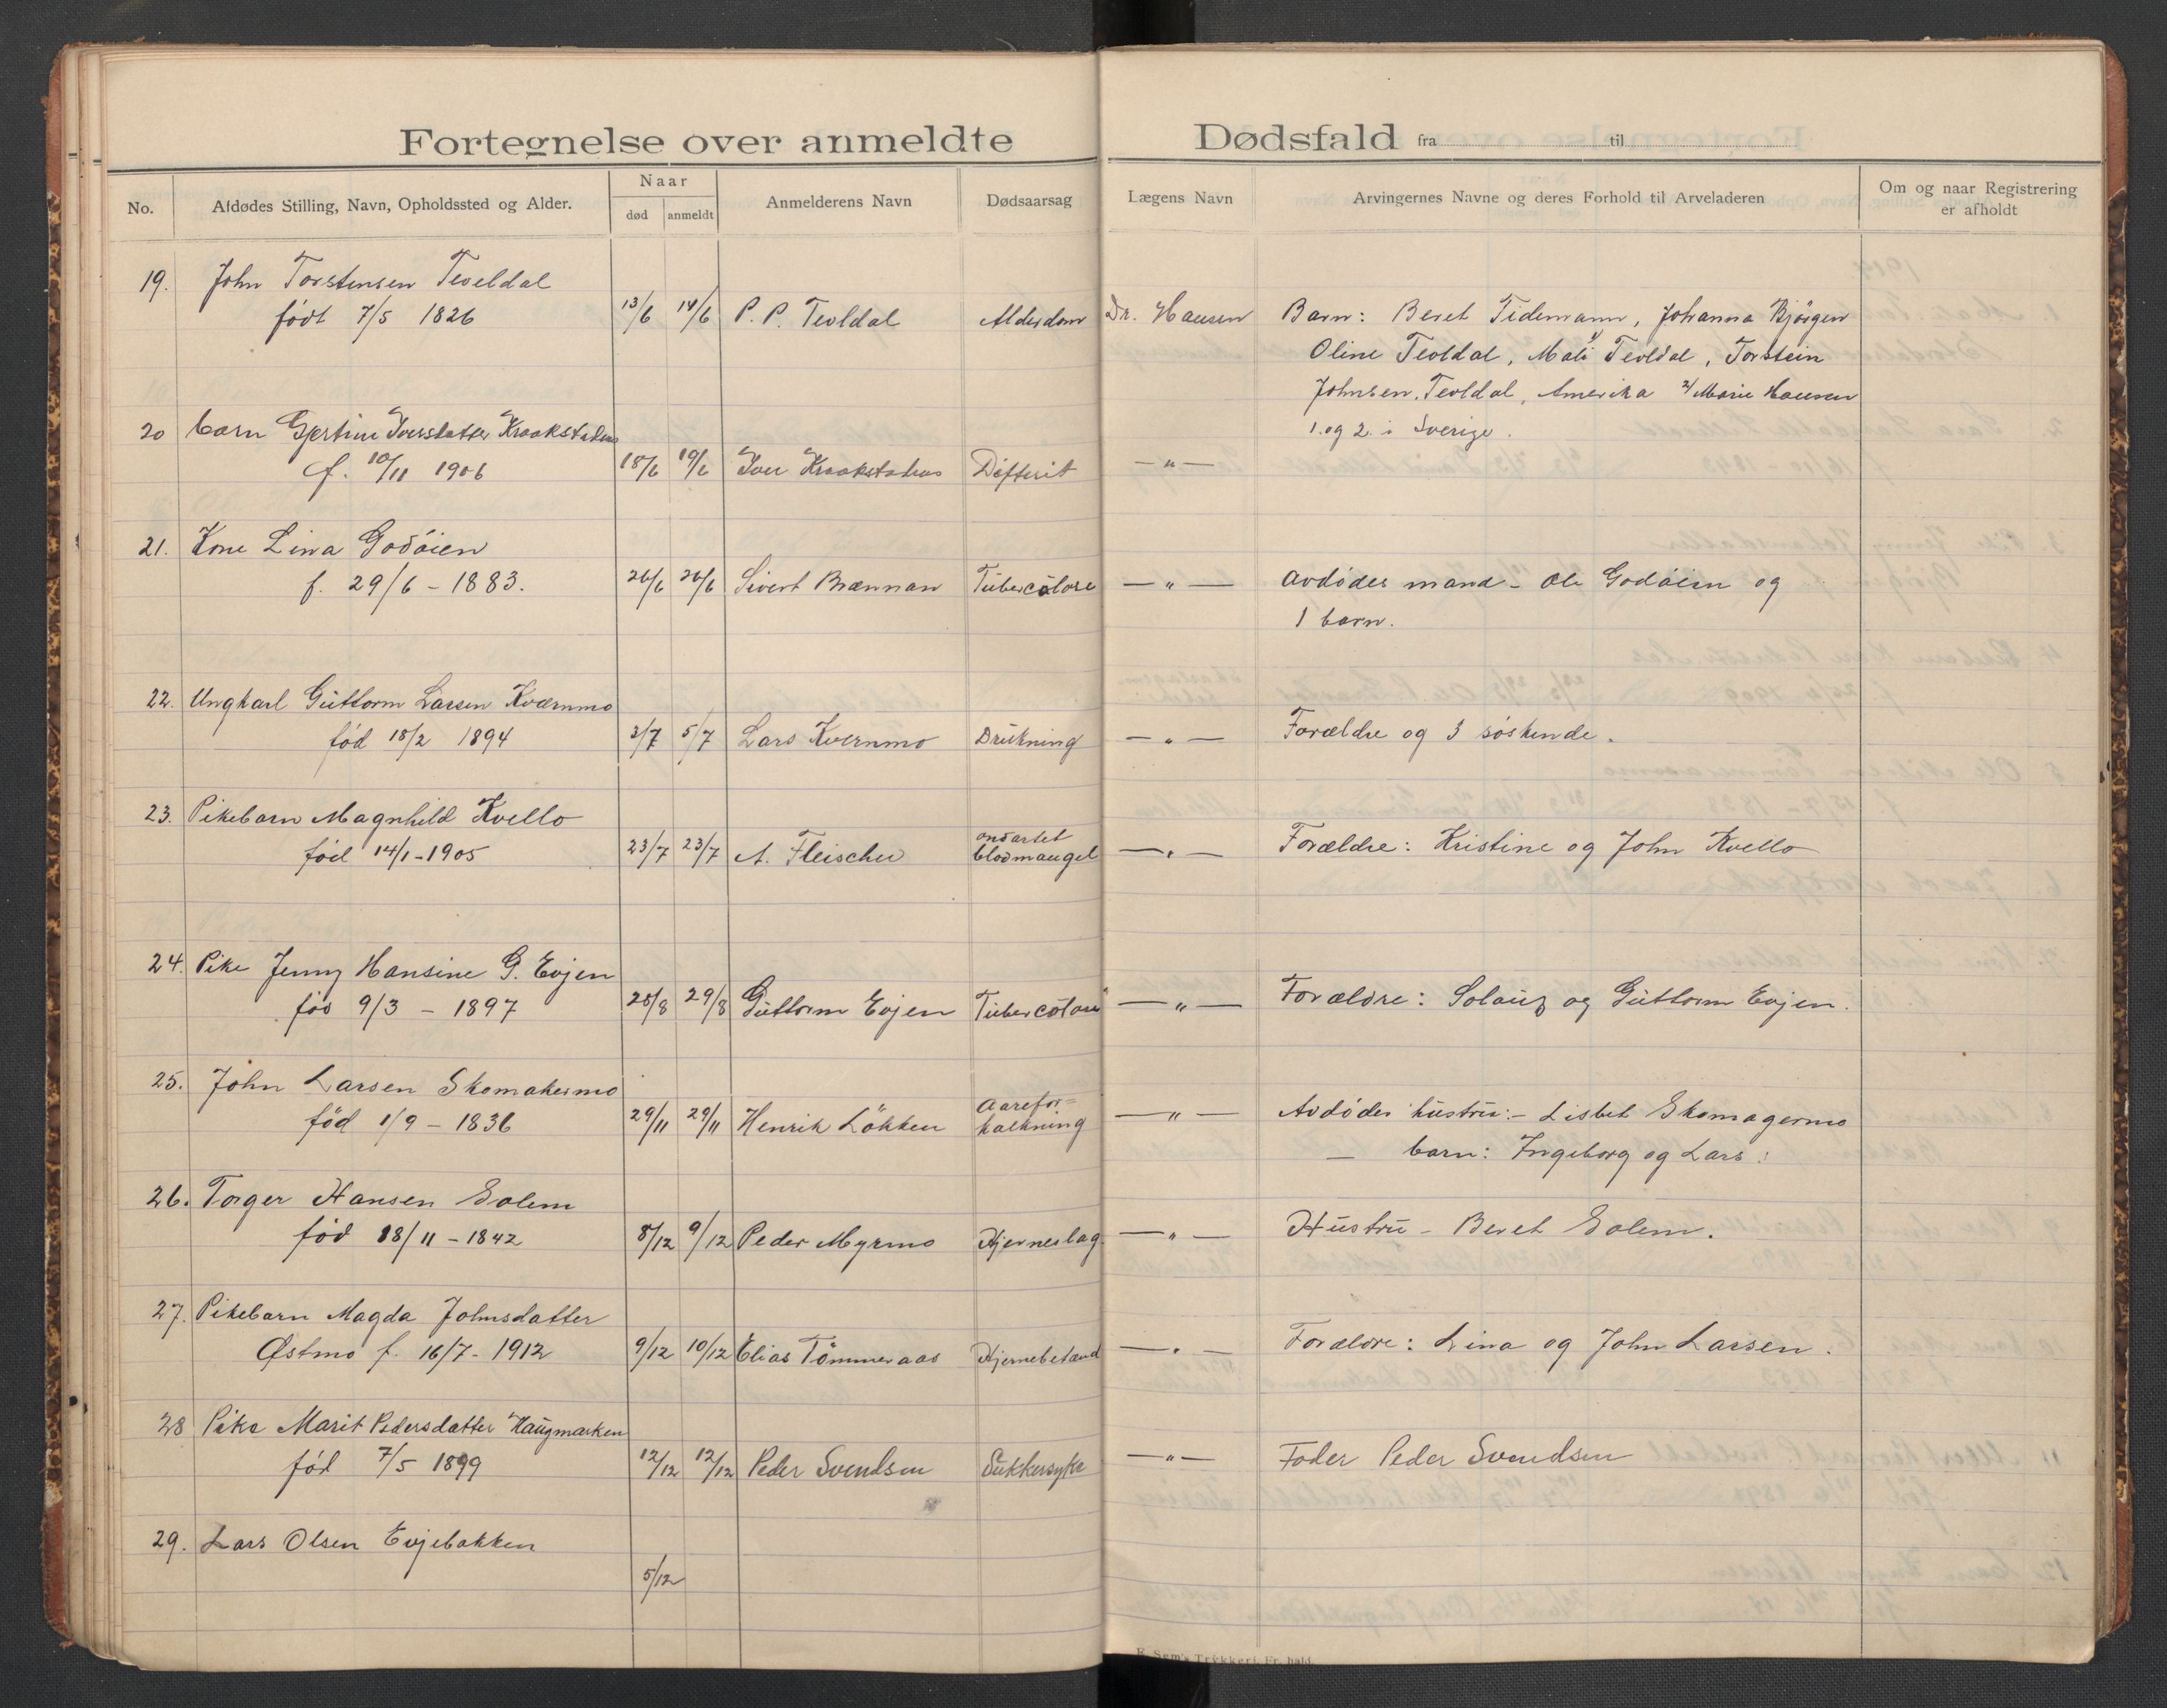 Fortegnelse over anmeldte Dødsfald fra til
No. Afdødes Stilling, Navn, Opholdssted og Alder. Naar død anmeldt Anmelderens Navn Dødsaarsag Lægens Navn Arvingernes Navne og deres Forhold til Arveladeren Om og naar Registrering er afholdt
19. John Torstensen Teveldal
født 7/5 1826 13/6 14/6 P. P. Tevldal Alderdom Dr. Hansen Barn: Beret Tidemann, Johanna Bjørgen
Oline Tevldal, Mali 1/ Tevldal, Torstein
Johnsen Tevldal, Amerika 2/ Marie Hansen
1. og 2. i Sverige.
20 barn Gjertine Iversdatter Kraakstadhus
f. 10/11 1906 18/6 19/6 Iver Kraakstadhus Difterit —"—
21. Kone Lina Godøien
f. 29/6 - 1883. 26/6 26/6 Sivert Brænnan Tubercolose —"— avdødes mand - Ole Godøien og
1 barn.
22. Ungkarl Guttorm Larsen Kværnmo
fød 18/2 1894 3/7 5/7 Lars Kvernmo Drukning —"— Forældre og 3 søskende.
23. Pikebarn Magnhild Kvello
fød 14/1 - 1905 23/7 23/7 A. Fleischer ondartet blodmangel —"— Forældre: Kristine og John Kvello
24. Pike Jenny Hansine G. Evjen
fød 9/3 - 1897 28/8 29/8 Guttorm Evjen Tubercolose —"— Forældre: Solaug og Guttorm Evjen.
25. John Larsen Skomakermo
fød 1/9 - 1836 29/11 29/11 Henrik Løkken Aarefor= kalkning —"— Avdødes hustru: - Lisbet Skomagermo
— barn: Ingeborg og Lars.
26. Torger Hansen Solem
fød 18/11 - 1842 8/12 9/12 Peder Myrmo Hjerneslag —"— Hustru - Beret Solem.
27. Pikebarn Magda Johnsdatter
Østmo f. 16/7 - 1912 9/12 10/12 Elias Tømmeraas Hjernebetænd —"— Forældre: Lina og John Larsen.
28 Pike Marit Pedersdatter Haugmarken
fød 7/5 1899 12/12 12/12 Peder Svendsen Sukkersyke —"— Fader Peder Svendsen
29. Lars Olsen Evjebakken
5/12